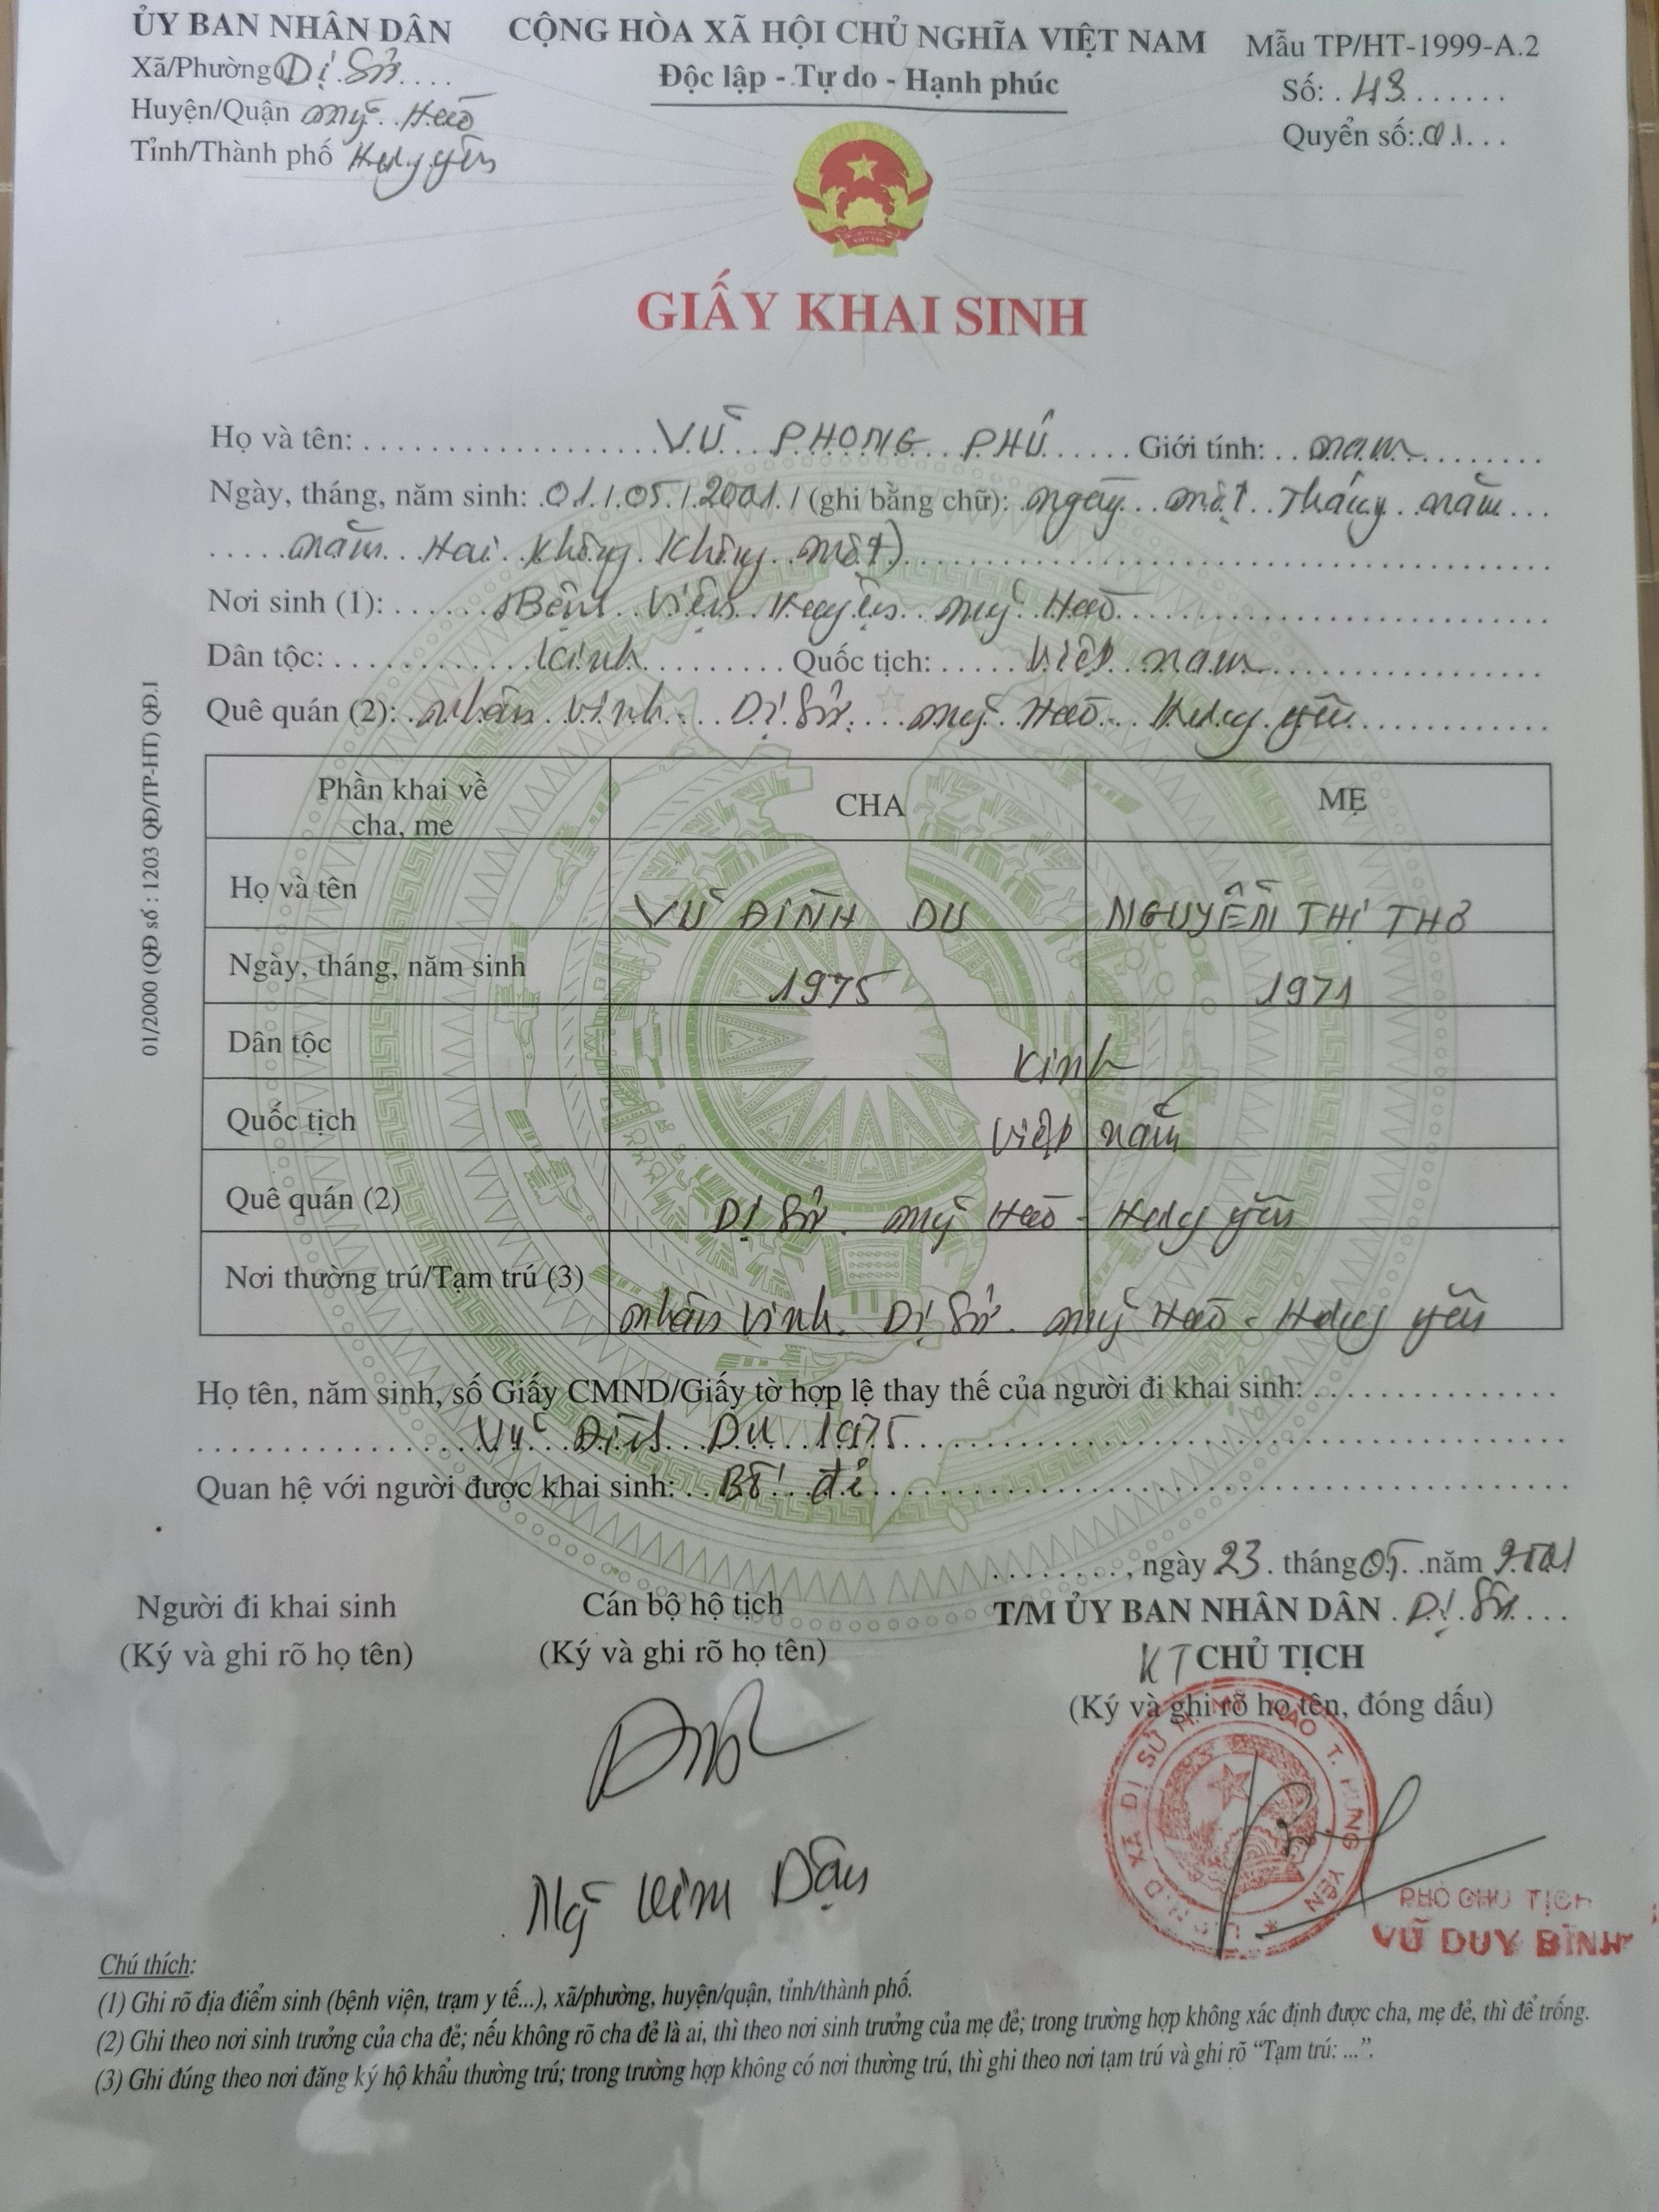 ỦY BAN NHÂN DÂN
CỘNG HÒA XÃ HỘI CHỦ NGHĨA VIỆT NAM
Mẫu TP/HT-1999-A.2
Xã/Phường Dị Sử
Độc lập - Tự do - Hạnh phúc
Số: 43
Huyện/Quận Mỹ Hào
Quyển số: 01
Tỉnh/Thành phố Hưng Yên
GIẤY KHAI SINH
Họ và tên: VŨ PHONG PHÚ Giới tính: nam
Ngày, tháng, năm sinh: 01/05/2001/ (ghi bằng chữ): ngày một tháng năm
năm Hai không không một)
Nơi sinh (1): Bệnh viện Huyện Mỹ Hào
Dân tộc: kinh Quốc tịch: Việt nam
Quê quán (2): Nhân Vinh Dị Sử Mỹ Hào - Hưng yên
01/2000 (QĐ số : 1203 QĐ/TP-HT) QĐ.1
Phần khai về cha, mẹ CHA MẸ
Họ và tên VŨ ĐÌNH DU NGUYỄN THỊ THƠ
Ngày, tháng, năm sinh 1975 1971
Dân tộc Kinh
Quốc tịch Việt nam
Quê quán (2) Dị Sử Mỹ Hào - Hưng yên
Nơi thường trú/Tạm trú (3) Nhân Vinh. Dị Sử. Mỹ Hào - Hưng yên
Họ tên, năm sinh, số Giấy CMND/Giấy tờ hợp lệ thay thế của người đi khai sinh:
Vũ Đình Du 1975
Quan hệ với người được khai sinh: Bố đẻ
, ngày 23 tháng 05 năm 2001
Người đi khai sinh
Cán bộ hộ tịch
T/M ỦY BAN NHÂN DÂN Dị Sử
(Ký và ghi rõ họ tên)
(Ký và ghi rõ họ tên)
KT CHỦ TỊCH
(Ký và ghi rõ họ tên, đóng dấu)
U.B.N.D XÃ DỊ SỬ H. MỸ HÀO T. HƯNG YÊN
Kim Dậu
PHÓ CHỦ TỊCH
VŨ DUY BÌNH
Chú thích:
(1) Ghi rõ địa điểm sinh (bệnh viện, trạm y tế...), xã/phường, huyện/quận, tỉnh/thành phố.
(2) Ghi theo nơi sinh trưởng của cha đẻ; nếu không rõ cha đẻ là ai, thì theo nơi sinh trưởng của mẹ đẻ; trong trường hợp không xác định được cha, mẹ đẻ, thì để trống.
(3) Ghi đúng theo nơi đăng ký hộ khẩu thường trú; trong trường hợp không có nơi thường trú, thì ghi theo nơi tạm trú và ghi rõ “Tạm trú: ...”.